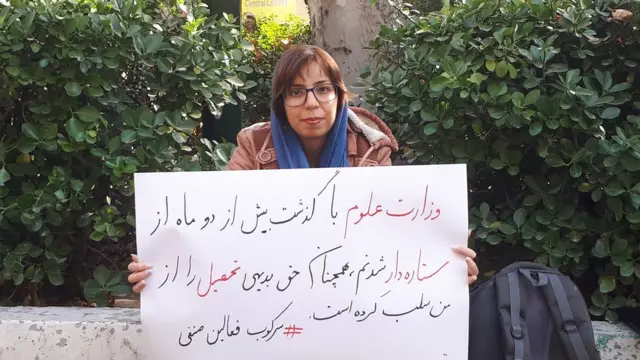 Central Library
وزارت علوم با گذشت بیش از دو ماه از
ستاره‌دار شدنم، همچنان حق بدیهی تحصیل را از
من سلب کرده است.
#سرکوب فعالین صنفی